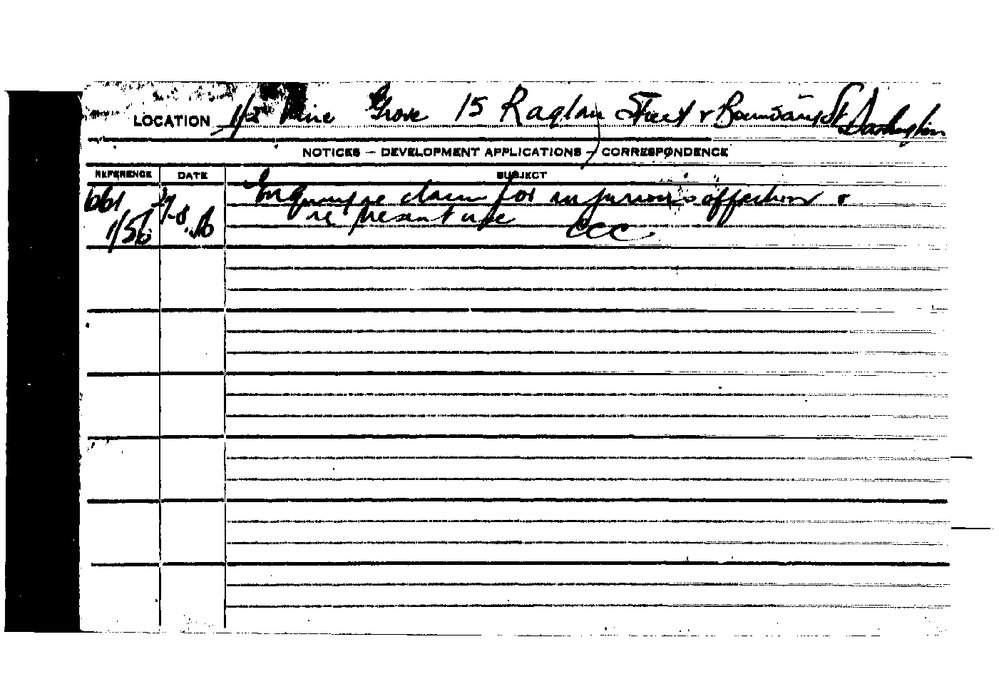 LOCATION 1/2 Vine Grove 15 Raglan Street & Boundary St Darlington
NOTICES – DEVELOPMENT APPLICATIONS – CORRESPONDENCE
REFERENCE DATE SUBJECT
661 Enquiry re claim for injurious affection &
1/56 re present use CCC